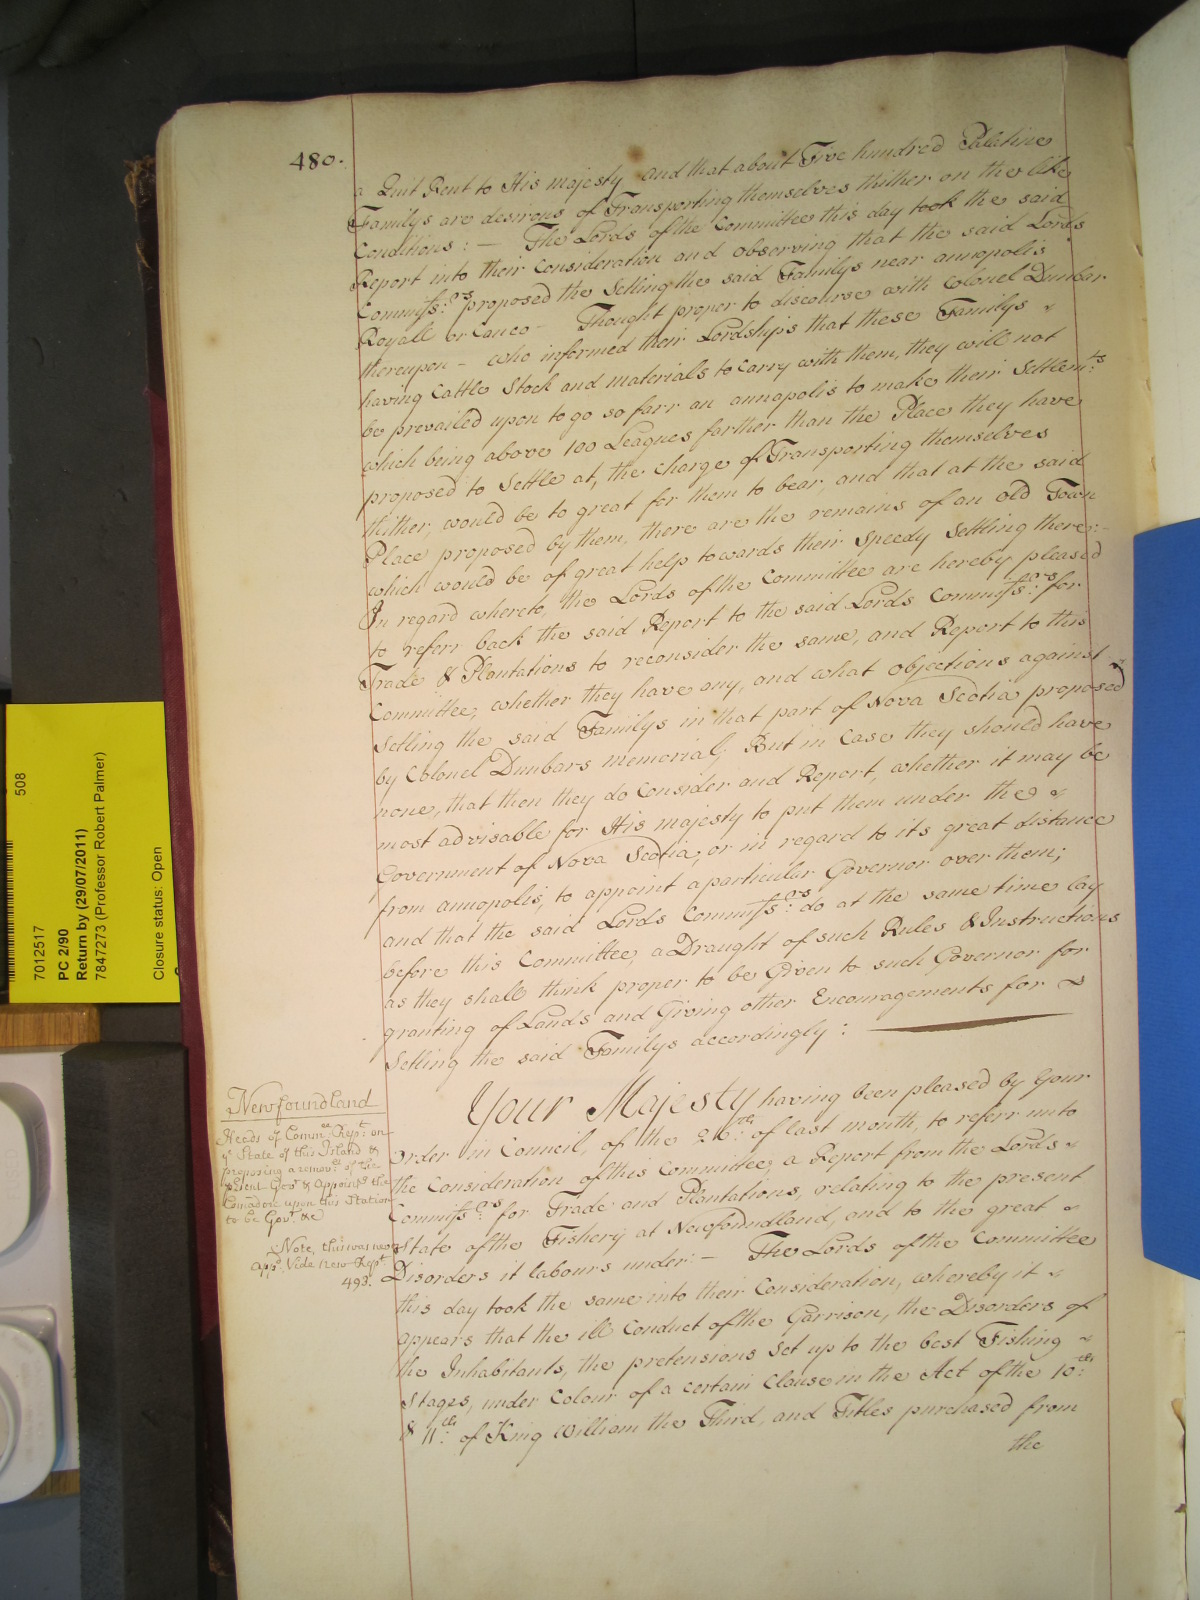 480.
a Quit Rent to His majesty and that about Five hundred Palatine
Familys are desirous of Transporting themselves thither on the like
Conditions : — The Lords of the Committee this day took the said
Report into their Consideration and observing that the said Lords
Commiss:rs proposed the Setling the said Familys near annapolis
Royall or Canco — Thought proper to discourse with Colonel Dunbar
thereupon — who informed their Lordships that these Familys
having Cattle Stock and materials to Carry with them, they will not
be prevailed upon to go so farr an annapolis to make their Settlem:ts
which being above 100 Leagues farther than the Place they have
proposed to Settle at, the Charge of Transporting themselves
thither, would be to great for them to bear, and that at the said
Place proposed by them, there are the remains of an old Town
which would be of great help towards their Speedy Settling there:—
In regard whereto, the Lords of the Committee are hereby pleased
to referr back the said Report to the said Lords Commiss:rs for
Trade & Plantations to reconsider the same, and Report to this
Committee, whether they have any, and what objections against
Setling the said Familys in that part of Nova Scotia proposed
by Colonel Dunbars memorial; But in Case they should have
none, that then they do Consider and Report, whether it may be
most advisable for His majesty to put them under the
Government of Nova Scotia, or in regard to its great distance
from annapolis, to appoint a particular Governor over them;
and that the said Lords Commiss:rs do at the same time lay
before this Committee, a Draught of such Rules & Instructions
as they shall think proper to be Given to such Governor for
granting of Lands and Giving other Encouragements for
Setling the said Familys accordingly :
Newfoundland
Heads of Comm:ee Rep:t on
ye State of this Island &
proposing a remov:l of the
present Gov:r & Appoint:g the
Comadore upon this Station
to be Gov:r &c
Note, this was never
app:d, Vide new Rep:t
493.
Your Majesty having been pleased by Your
Order in Council, of the 26th: of last month, to referr unto
the Consideration of this Committee, a Report from the Lords
Commiss:rs for Trade and Plantations, relating to the present
State of the Fishery at Newfoundland, and to the great
Disorders it labours under: — The Lords of the Committee
this day took the same into their Consideration, whereby it
appears that the ill Conduct of the Garrison, the Disorders of
the Inhabitants, the pretensions Set up to the best Fishing
Stages, under Colour of a certain Clause in the Act of the 10:th
& 11:th of King William the Third, and Titles purchased from
the
508
7012517
PC 2/90
Return by (29/07/2011)
7847273 (Professor Robert Palmer)
Closure status: Open